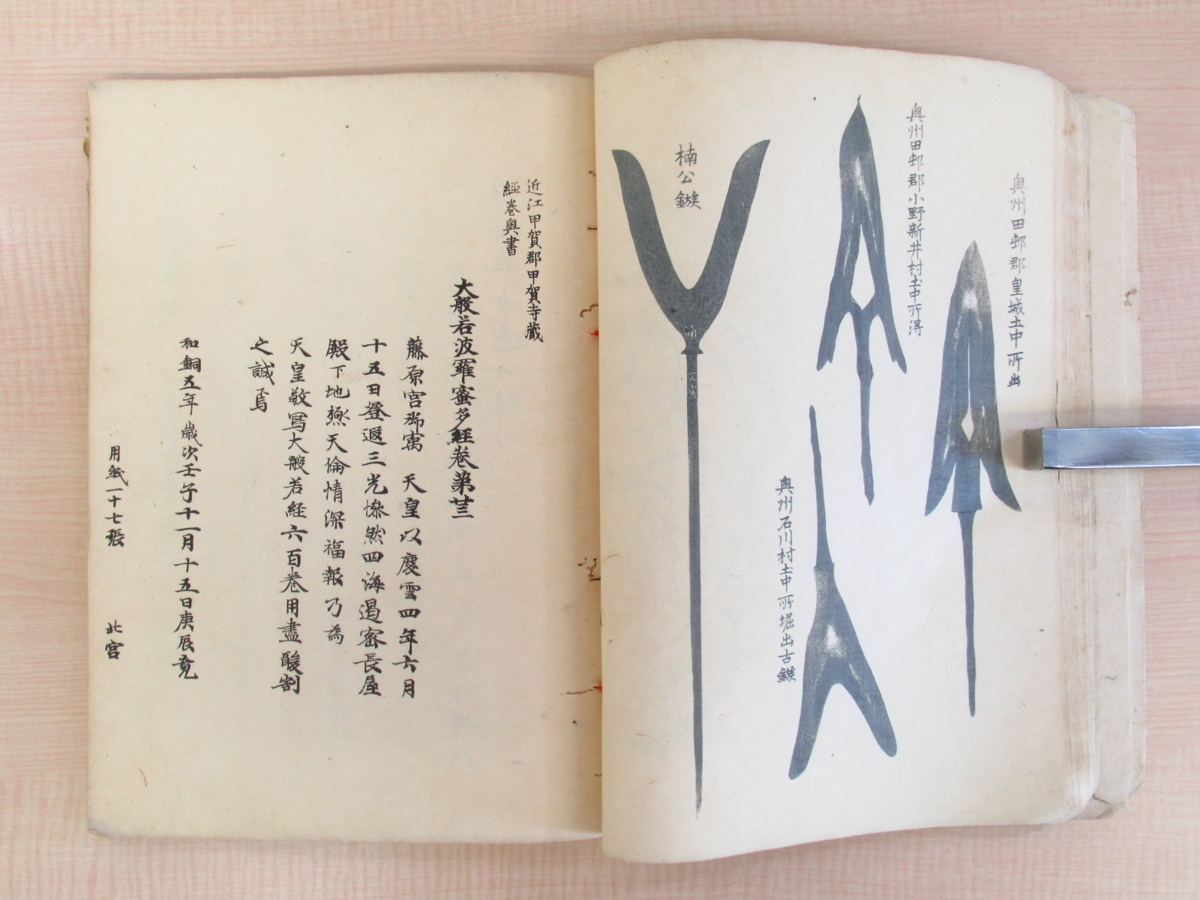 奥州田邨郡皇城土中所出
奥州田邨郡小野新井村土中所得
奥州石川村土中所堀出古鏃
楠公鏃
近江甲賀郡甲賀寺蔵
經卷奥書
大般若波羅蜜多經卷第廿三
藤原宮御寓 天皇以慶雲四年六月
十五日登遐三光惨然四海遏密長屋
殿下地極天倫情深福報乃為
天皇敬寫大般若経六百卷用盡酸割
之誠焉
和銅五年歳次壬子十一月十五日庚辰竟
用紙一十七張 北宮